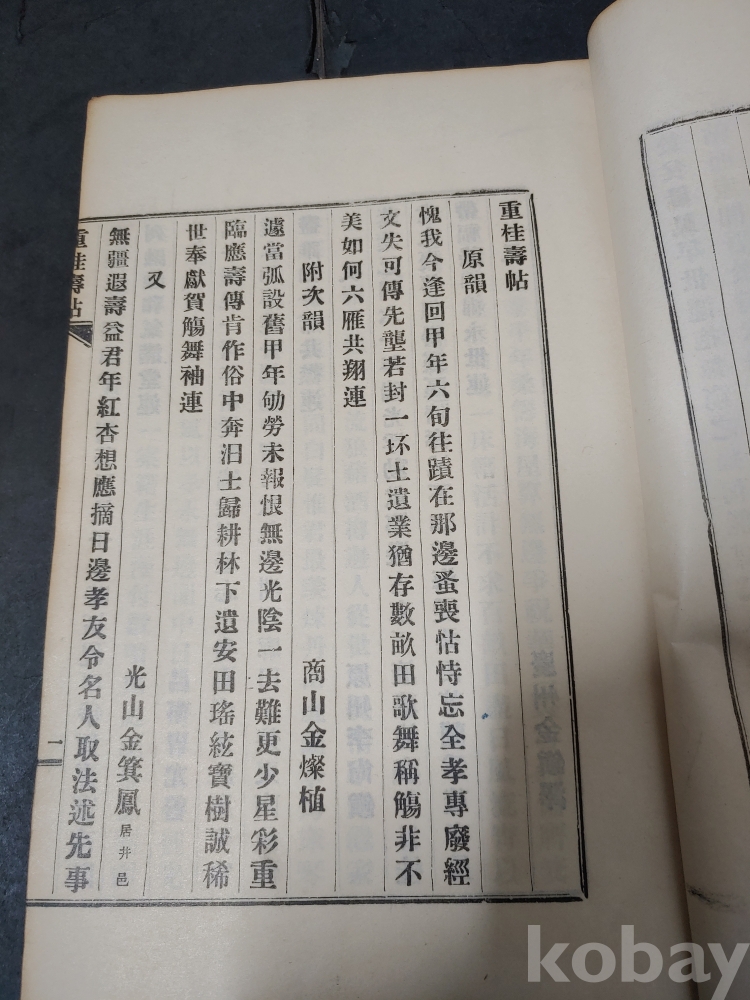 重桂壽帖
原韻
愧我今逢回甲年六旬往蹟在那邊蚤喪怙恃忘全孝專廢經
文失可傳先壟若封一坏土遺業猶存數畝田歌舞稱觴非不
美如何六雁共翔連
附次韻 商山金燦植
遽當弧設舊甲年劬勞未報恨無邊光陰一去難更少星彩重
臨應壽傳肯作俗中奔汩士歸耕林下遺安田瑤絃寶樹誠稀
世奉獻賀觴舞袖連
又 光山金箕鳳 居井邑
無疆遐壽益君年紅杏想應摘日邊孝友令名人取法述先事
重桂壽帖
一
kobay